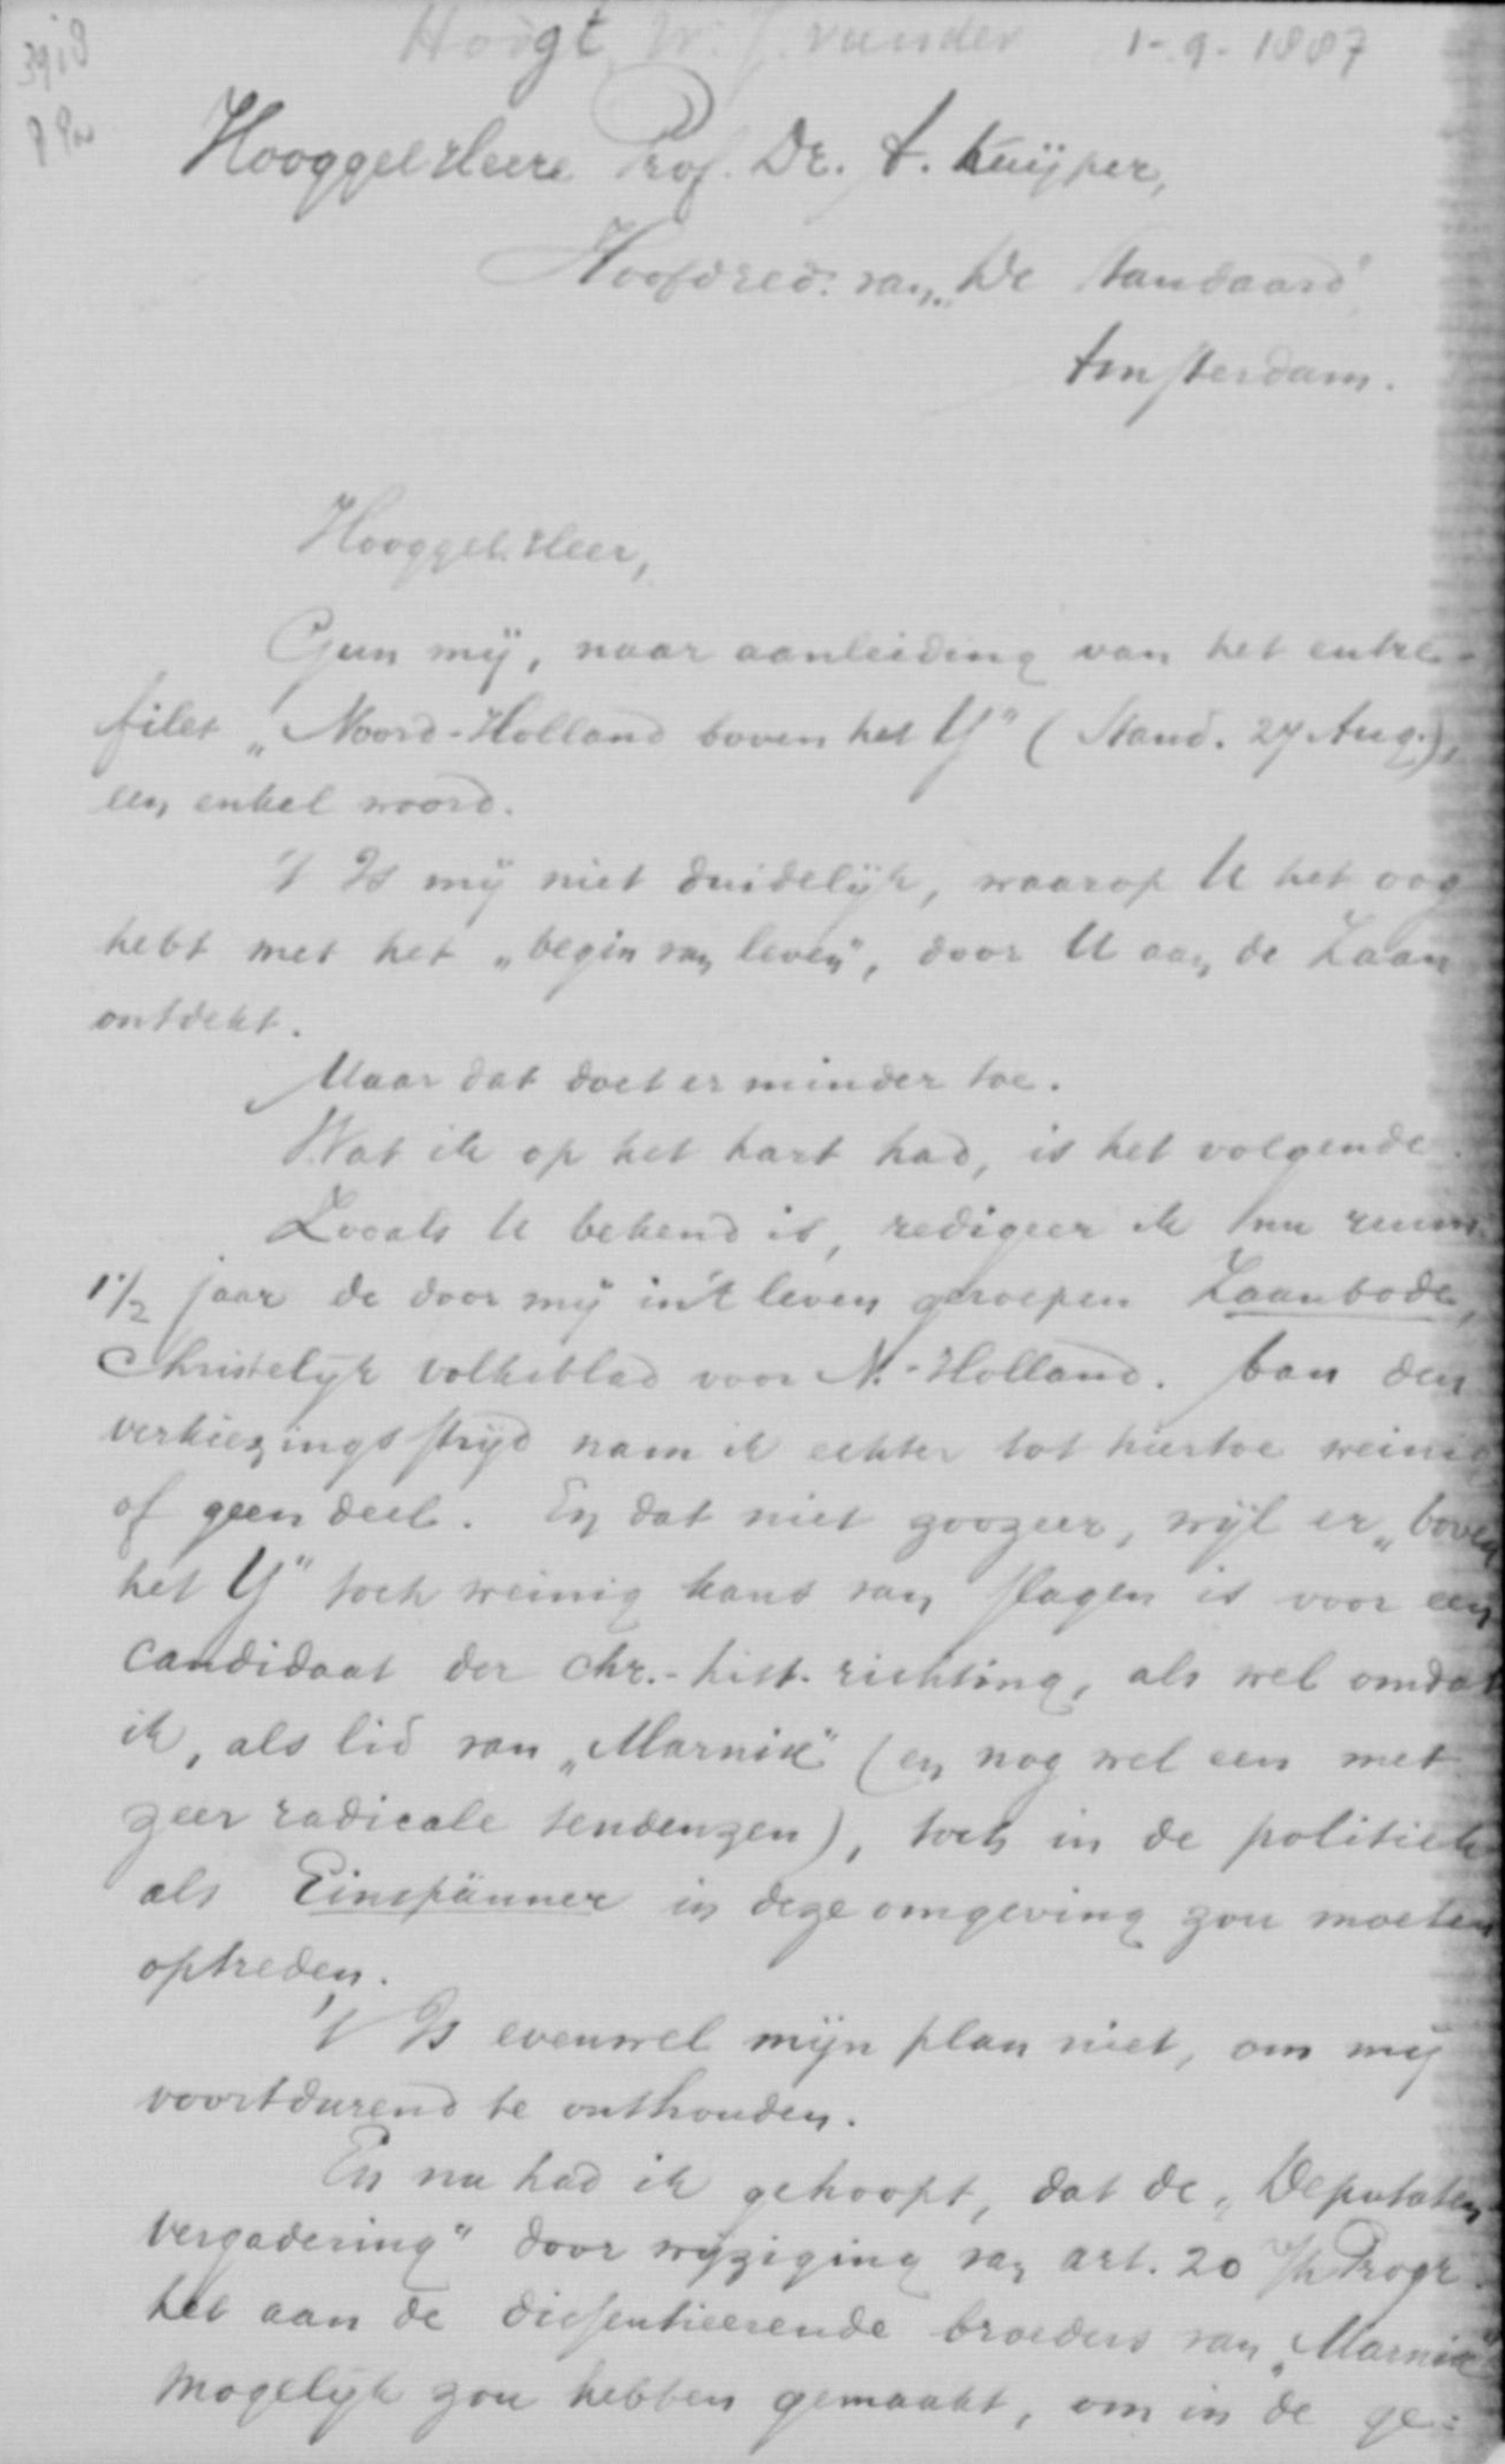 Hoogt, W. J. van der 1-9-1887
3918
Hooggel. Heere Prof. Dr. A. Kuÿper,
Hoofdred. van „De Standaard"
Amsterdam.
Hooggel. Heer,
Gun mÿ, naar aanleiding van het entre-
filet „Noord-Holland boven het Y" (Stand. 27 Aug.),
een enkel woord.
't Is mÿ niet duidelÿk, waarop U het oog
hebt met het „begin van leven", door U aan de Zaan
ontdekt.
Maar dat doet er minder toe.
Wat ik op het hart had, is het volgende.
Zooals U bekend is, redigeer ik nu ruim
1 1/2 jaar de door mÿ in't leven geroepen Zaanbode,
Christelÿk volksblad voor N.-Holland. Aan den
verkiezingsstrÿd nam ik echter tot hiertoe weinig
of geen deel. En dat niet zoozeer, wÿl er „boven
het Y" toch weinig kans van slagen is voor een
candidaat der chr.-hist. richting, als wel omdat
ik, als lid van „Marnix" (en nog wel een met
zeer radicale tendenzen), toch in de politiek
als Einspänner in deze omgeving zou moeten
optreden.
't Is evenwel mÿn plan niet, om mÿ
voortdurend te onthouden.
En nu had ik gehoopt, dat de „Deputaten-
vergadering" door wÿziging van art. 20 v/h Progr.
het aan de dissentieerende broeders van „Marnix"
mogelÿk zou hebben gemaakt, om in de ge-